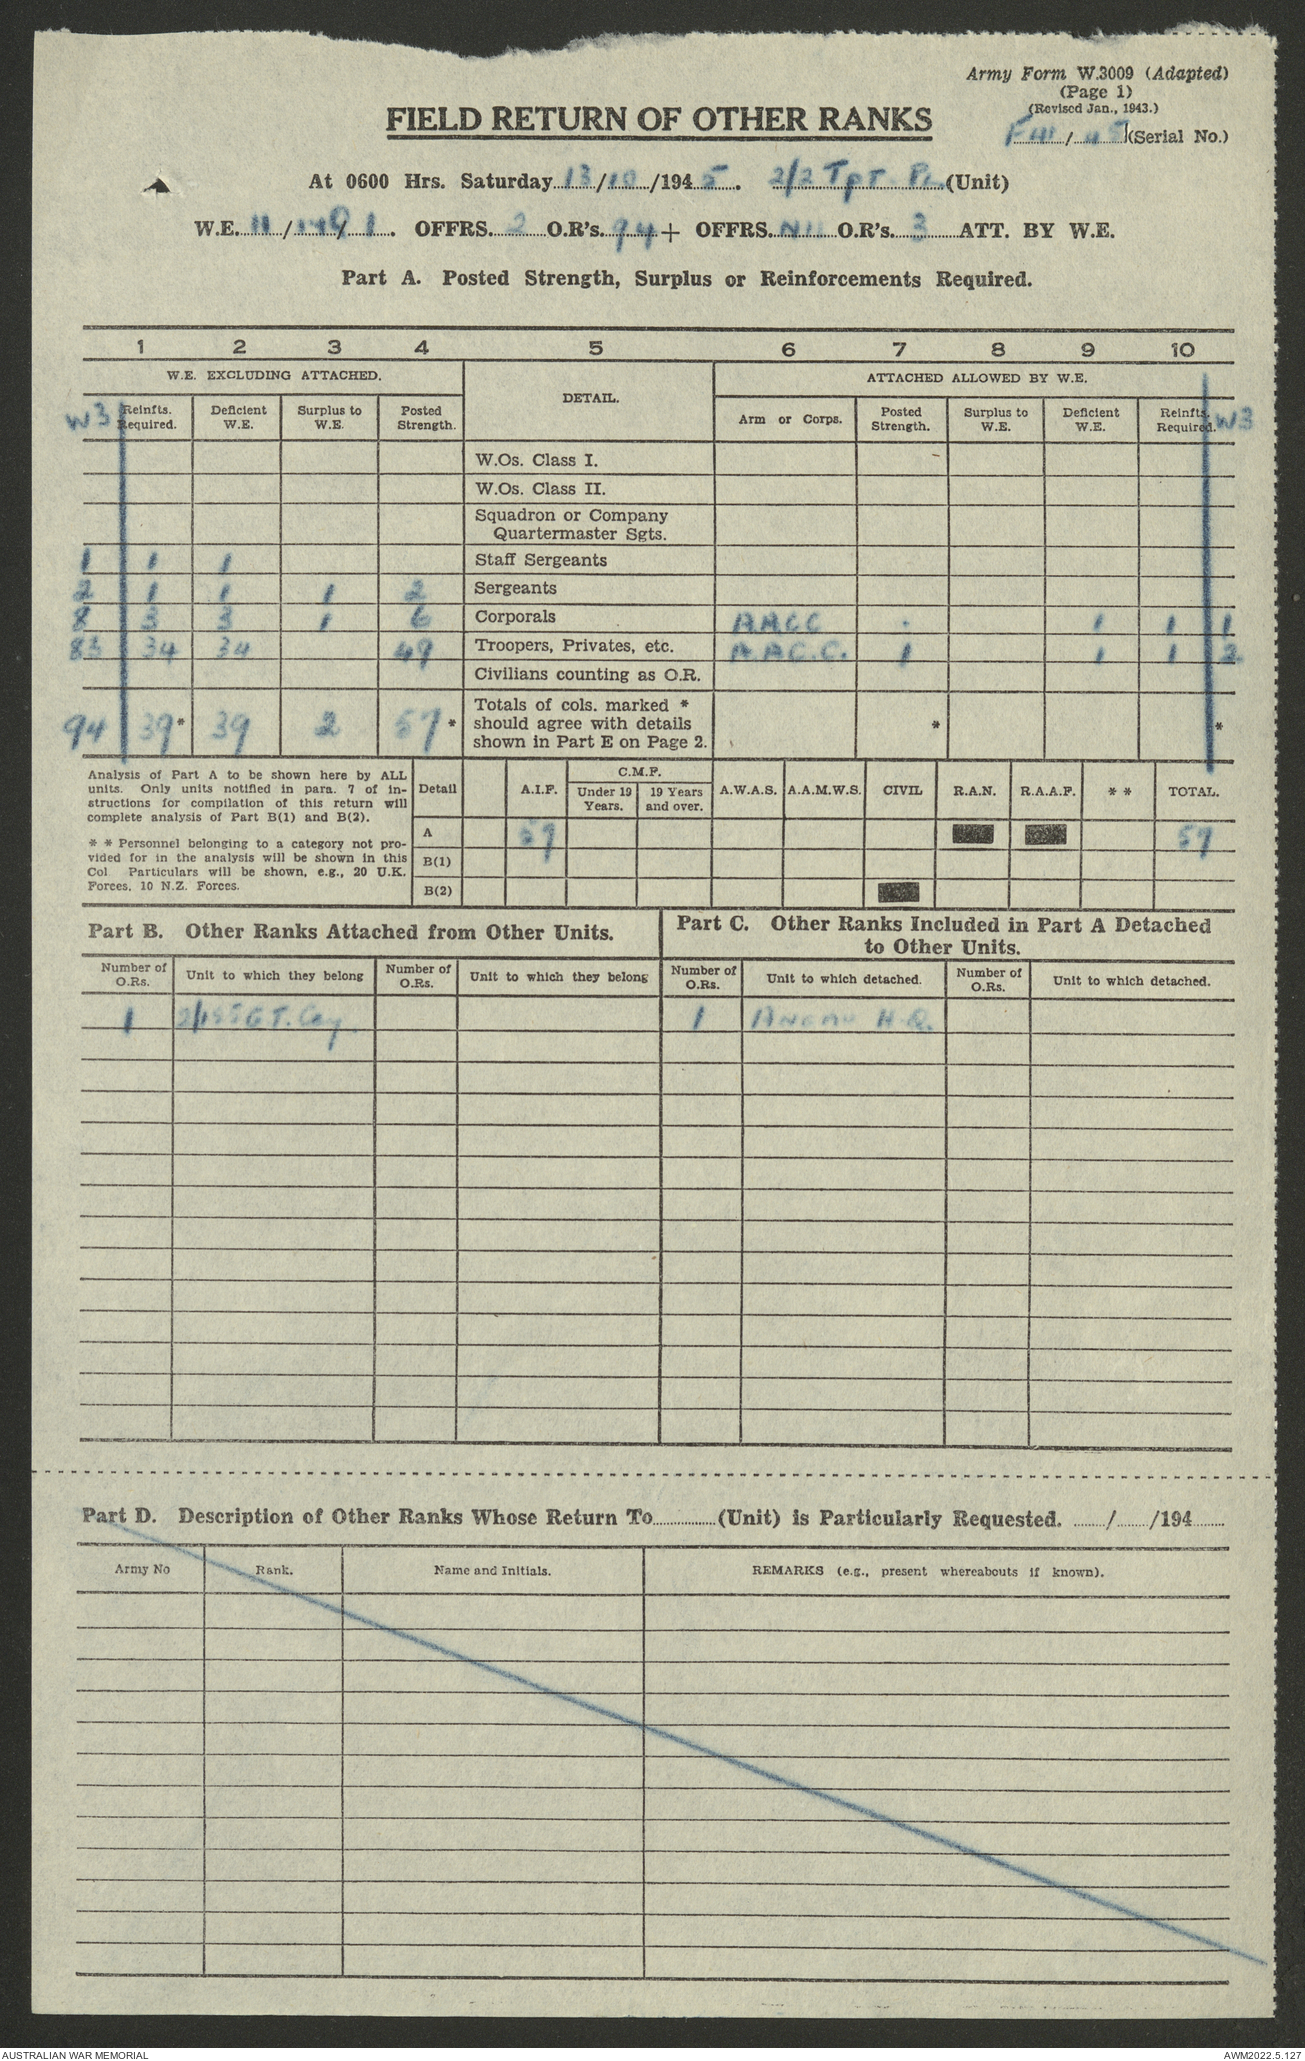 Army Form W.3009 (Adapted)
(Page 1)
(Revised Jan., 1943.)
(Serial No.)
FIELD RETURN OF OTHER RANKS
At 0600 Hrs. Saturday 13/10/1945. 2/2 Tpt. Pl. (Unit)
W.E. 11/ / 1. OFFRS. 2 O.R's. 94 + OFFRS. Nil O.R's. 3 ATT. BY W.E.
Part A. Posted Strength, Surplus or Reinforcements Required.
1 2 3 4 5 6 7 8 9 10
W.E. EXCLUDING ATTACHED. DETAIL. ATTACHED ALLOWED BY W.E.
W3 Reinfts. Required. Deficient W.E. Surplus to W.E. Posted Strength. Arm or Corps. Posted Strength. Surplus to W.E. Deficient W.E. Reinfts. Required. W3
W.Os. Class I.
W.Os. Class II.
Squadron or Company
Quartermaster Sgts.
1 1 1 Staff Sergeants
2 1 1 1 2 Sergeants
8 3 3 1 6 Corporals A.A.C.C. . 1 1 1
83 34 34 49 Troopers, Privates, etc. A.A.C.C. 1 1 1 2
Civilians counting as O.R.
94 39* 39 2 57* Totals of cols. marked * * *
should agree with details
shown in Part E on Page 2.
Analysis of Part A to be shown here by ALL
units. Only units notified in para. 7 of in-
structions for compilation of this return will
complete analysis of Part B(1) and B(2).
* * Personnel belonging to a category not pro-
vided for in the analysis will be shown in this
Col Particulars will be shown, e.g., 20 U.K.
Forces, 10 N.Z. Forces.
Detail A.I.F. C.M.F. Under 19 Years. 19 Years and over. A.W.A.S. A.A.M.W.S. CIVIL R.A.N. R.A.A.F. * * TOTAL.
A 57 57
B(1)
B(2)
Part B. Other Ranks Attached from Other Units.
Number of O.Rs. Unit to which they belong Number of O.Rs. Unit to which they belong
1 2/155 G.T. Coy.
Part C. Other Ranks Included in Part A Detached
to Other Units.
Number of O.Rs. Unit to which detached. Number of O.Rs. Unit to which detached.
1 Angau H.Q.
Part D. Description of Other Ranks Whose Return To (Unit) is Particularly Requested. / /194
Army No Rank. Name and Initials. REMARKS (e.g., present whereabouts if known).
AUSTRALIAN WAR MEMORIAL AWM2022.5.127